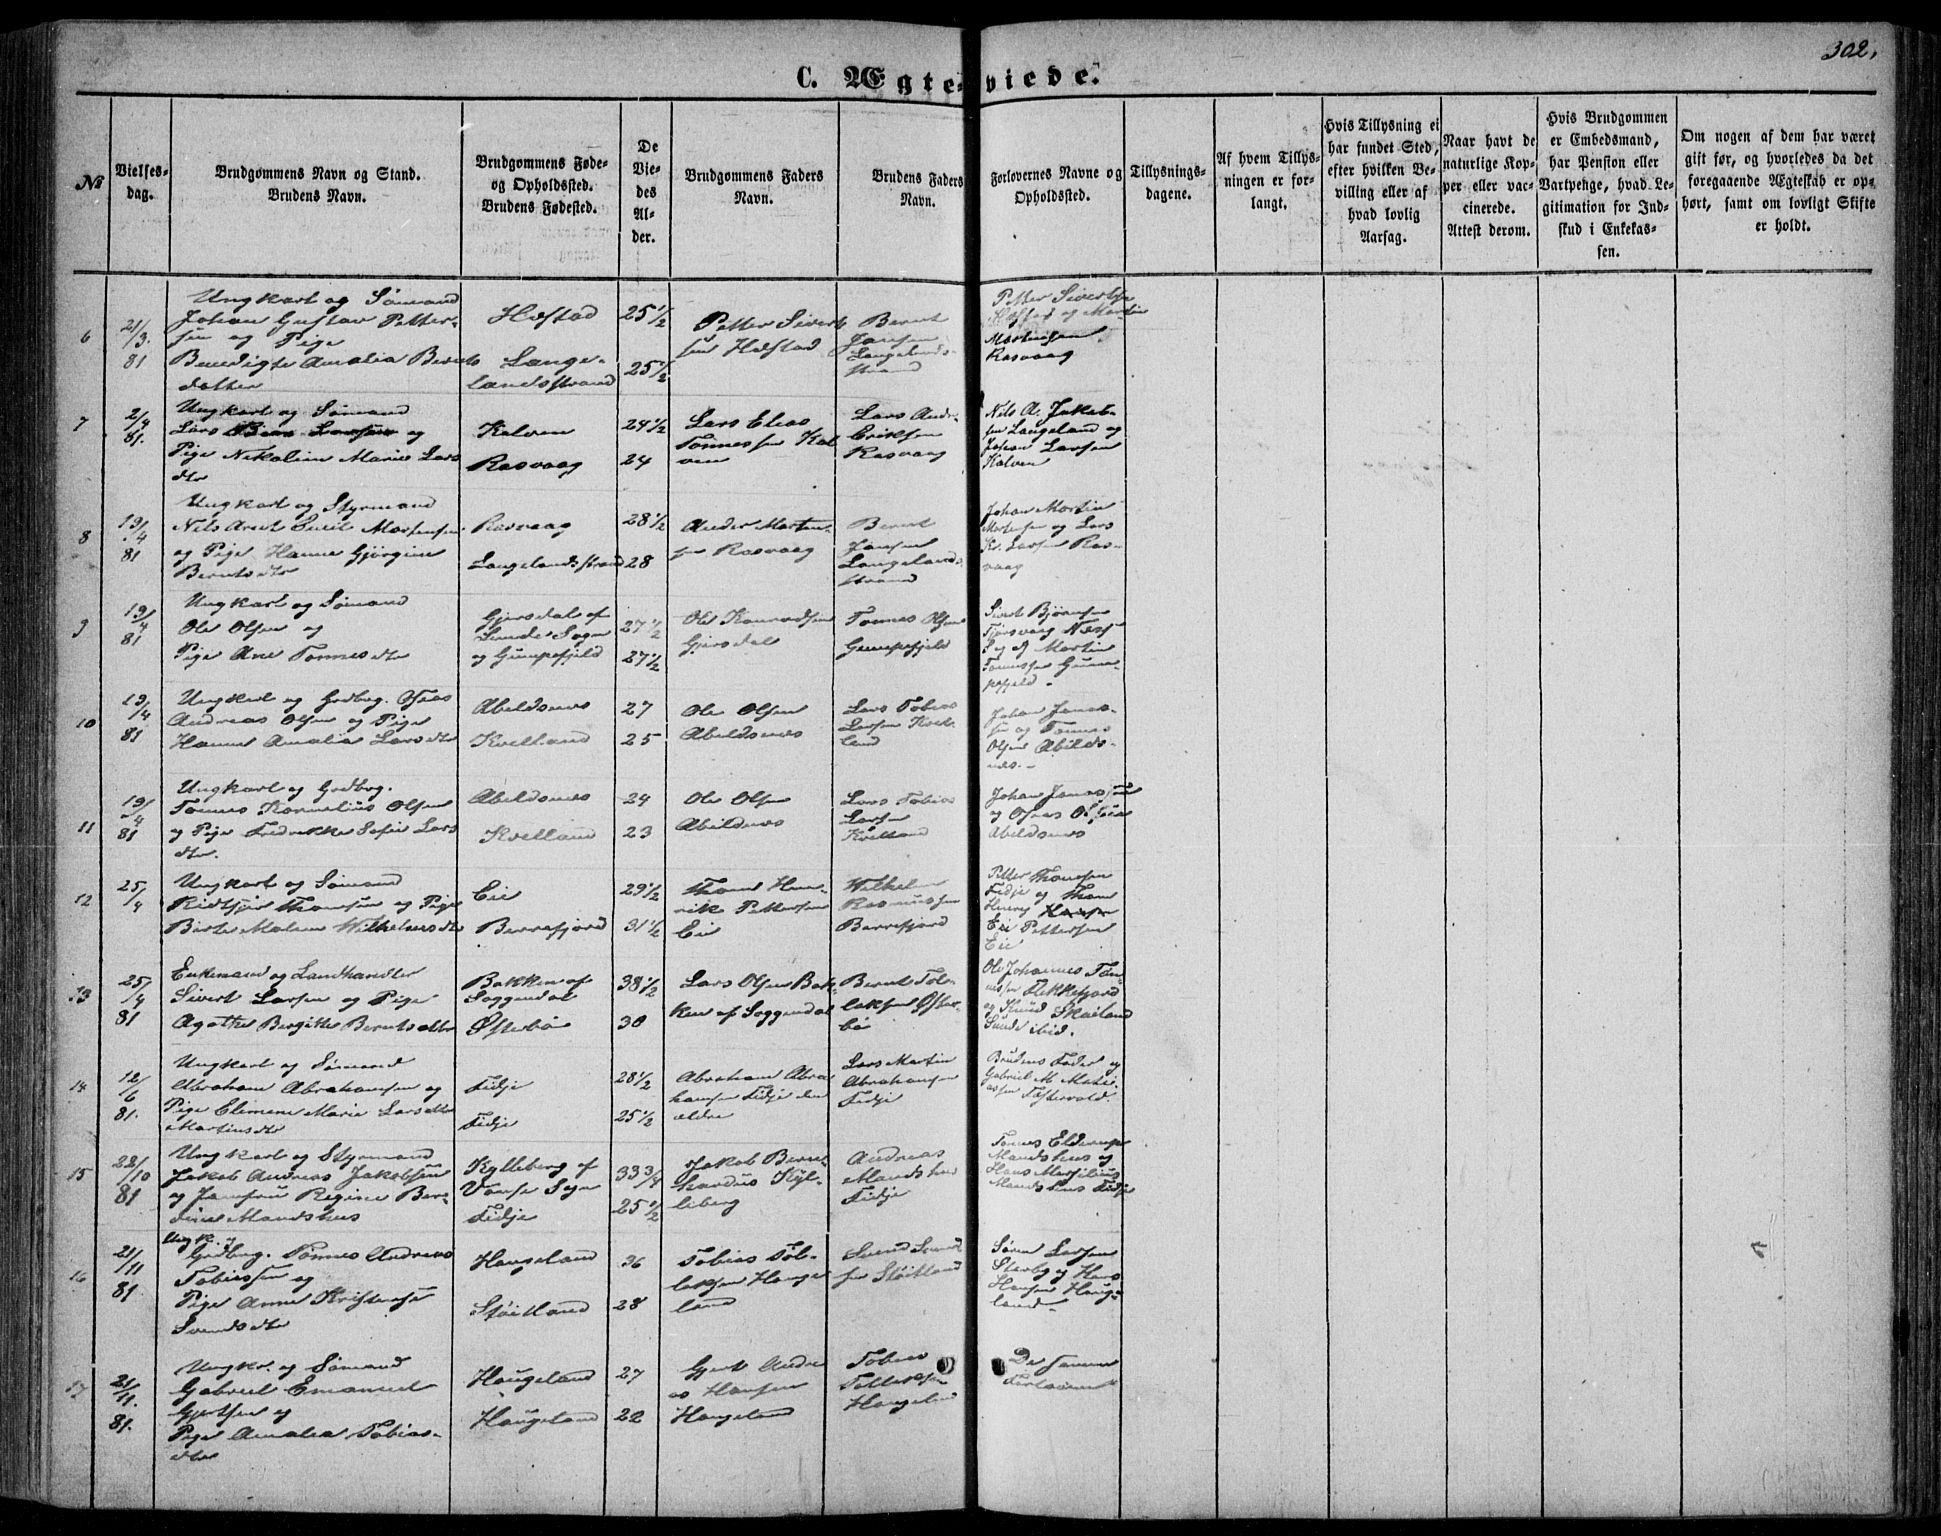 302,
C. Ægte-viede.
№
Vielses-
dag.
Brudgommens Navn og Stand.
Brudens Navn.
Brudgommens Føde-
og Opholdssted.
Brudens Fødested.
De
Vie-
des
Al-
der.
Brudgommens Faders
Navn.
Brudens Faders
Navn.
Forlovernes Navne og
Opholdssted.
Tillysnings-
dagene.
Af hvem Tillys-
ningen er for-
langt.
Hvis Tillysning ei
har fundet Sted,
efter hvilken Be-
villing eller af
hvad lovlig
Aarsag.
Naar havt de
naturlige Kop-
per eller vac-
cinerede.
Attest derom.
Hvis Brudgommen
er Embedsmand,
har Pension eller
Vartpenge, hvad Le-
gitimation for Ind-
skud i Enkekas-
sen.
Om nogen af dem har været
gift før, og hvorledes da det
foregaaende Ægteskab er op-
hørt, samt om lovligt Skifte
er holdt.
6
21/3.
81
Ungkarl og Sømand
Johan Gustav Petter-
sen og Pige
Benedigte Amalia Bernts
datter
Hæstad
Lange-
landsstrand
25½
25½
Petter Sivert
sen Hæstad
Bernt
Jansen
Langelands-
strand
Petter Sivertsen
og Martin
Mortensen
Rasvaag
7
2/4
81.
Ungkarl og Sømand
Lars og
Pige Nikoline Marie Lars
dtr
Kalven
Rasvaag
24½
24
Lars Elias
Tønnessen Kal
ven
Lars Andr.
Eriksen
Rasvaag
Nils A. Jakob-
sen Langeland og
Johan Larsen
Kalven
8
19/4
81
Ungkarl og Styrmand
Nils Arnt Emil Mortensen
og Pige Hanne Gjørgine
Berntsdtr
Rasvaag
Langelandsstrand
28½
28
Ander Morten-
sen Rasvaag
Bernt
Jansen
Langelands-
strand
Johan Martin
Mortensen og Lars
Kr. Larsen Ras-
vaag
9
19/4
81
Ungkarl og Sømand
Ole Olsen og
Pige Ane Tønnesdtr
Gjersdal af
Lunde Sogn
og Gumpefjeld
27½
27½
Ole Konradsen
Gjersdal
Tønnes Olsen
Gumpefjeld
Sivert Bjørnsen
Fjørsvaag Næs
S og Martin
Tønnessen Gum-
pefjeld.
10
19/4
81
Ungkarl og Grdbrg. Oseas
Andreas Olsen og Pige
Hanne Amalia Larsdtr
Abeldsnes
Kvelland
27
25
Ole Olsen
Abeldsnes
Lars Tobias
Larsen Kvel-
land
Johan Jonas-
sen og Tønnes
Olsen Abelds-
nes.
11
19/4
81
Ungkarl og Grdbrg.
Tønnes Kornelius Olsen
og Pige Fredrikke Sofie Lars
dtr.
Abeldsnes
Kvelland
24
23
Ole Olsen
Abeldsnes
Lars Tobias
Larsen
Kvelland
Johan Jonassen
og Oseas Olsen
Abeldsnes
12
25/4
Ungkarl og Sømand
Thomsen og Pige
Birte Malene Wilhelmsdtr
Eie
Berrefjord
29½
31½
Thom Hen-
rik Pettersen
Eie
Wilhelm
Rasmussen
Berrefjord
Petter Thomsen
Fidje og Thom
Henry Hansen
Eie Pettersen
Eie
13
25/4
81
Enkemand og Landhandler
Sivert Larsen og Pige
Agathe Bergitte Berntsdtr
Bakken af
Soggendal
Østerbø
38½
30
Lars Olsen Bak-
ken af Soggendal
Bernt Tol-
laksen Øster-
bø
Ole Johannes Tøn-
nessen Flekkefjord
og Knud Skailand
Sunde ibid.
14
12/6
81.
Ungkarl og Sømand
Abraham Abrahamsen og
Pige Elimene Marie Larsdtr
Martinsdtr
Fidje
Fidje
28½
25½
Abraham Abra
hamsen Fidje den
ældre
Lars Martin
Abrahamsen
Fidje
Brudens Fader og
Gabriel M. Mati-
assen Fostervold.
15
22/10
81
Ungkarl og Styrmand
Jakob Andreas Jakobsen
og Jomfru Regine Ber-
dine Mandshus
Kylleberg af
Vanse Sogn
Fidje
33¾
25½
Jakob Bernt
Kyl-
leberg
Andreas
Mandshus
Fidje
Tønnes
Mandshus og
Hans Marsilius
Mandshus Fidje
16
21/11
81
Ungk. og
Grdbrg. Tønnes Andreas
Tobiassen og
Pige Anne Kristense
Svendsdtr
Haugeland
Støitland
36
28
Tobias Tol-
laksen Hauge
land
Svend Svend
sen Støitland
Søren Larsen
Stenby og Hans
Hansen Hauge-
land.
17
21/11.
81.
Ungkr. og Sømand
Gabriel Emanuel
Gjertsen og
Pige Amalia Tobias-
dtr
Haugeland
Haugeland
27
22
Gjert Andre
as Hansen
Haugeland
Tobias
Tollaksen
Haugeland
De samme
Forlovere